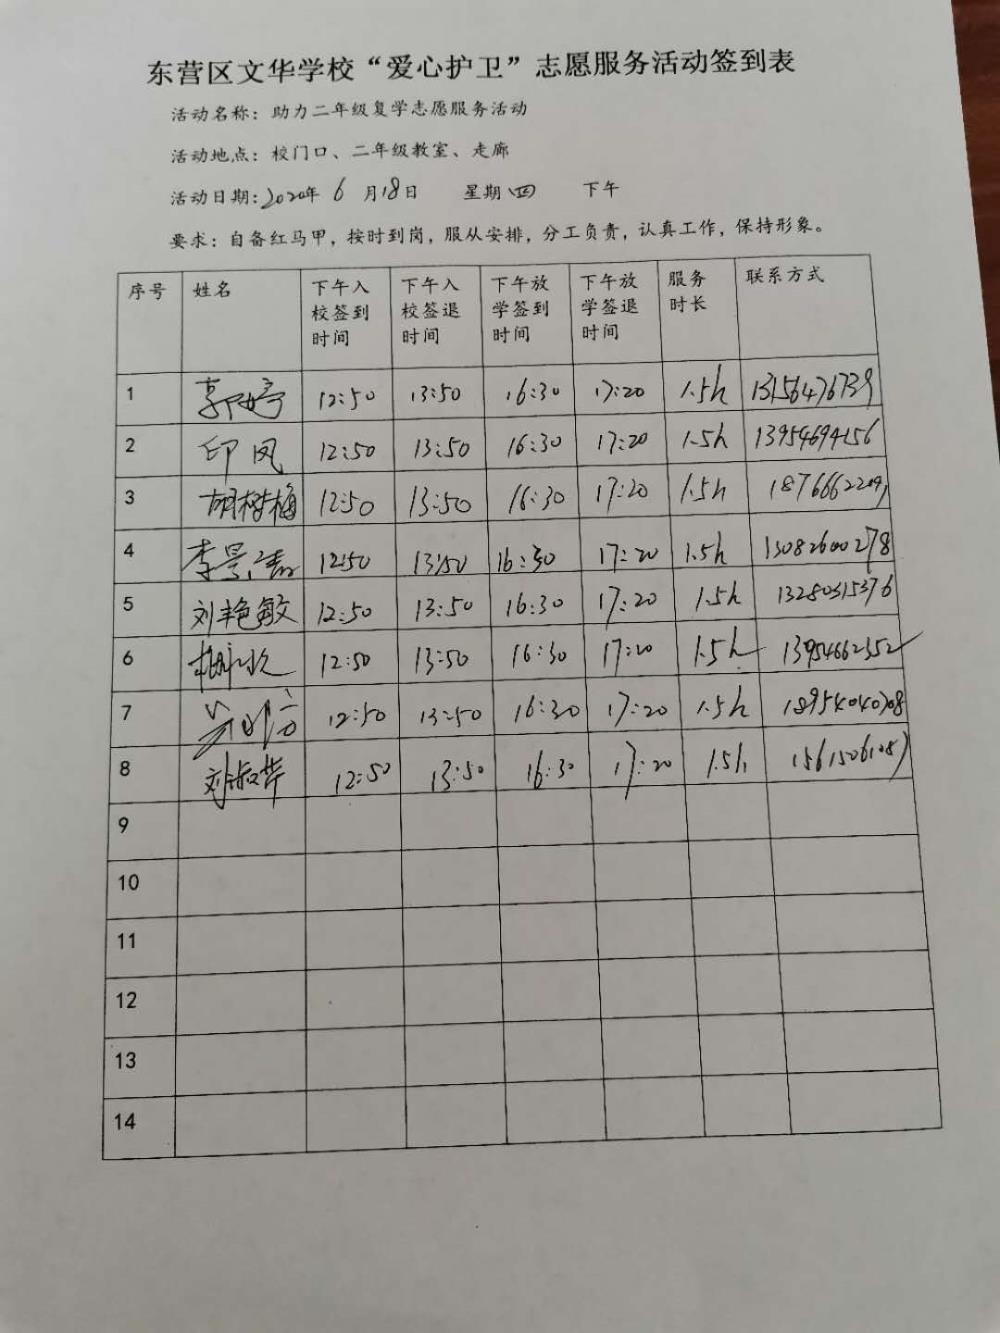 东营区文华学校“爱心护卫”志愿服务活动签到表
活动名称：助力二年级复学志愿服务活动
活动地点：校门口、二年级教室、走廊
活动日期：2020年 6 月18日 星期四 下午
要求：自备红马甲，按时到岗，服从安排，分工负责，认真工作，保持形象。
序号 姓名 下午入校签到时间 下午入校签退时间 下午放学签到时间 下午放学签退时间 服务时长 联系方式
1 郭婷 12:50 13:50 16:30 17:20 1.5h 13156476739
2 印凤 12:50 13:50 16:30 17:20 1.5h 13954694156
3 胡树梅 12:50 13:50 16:30 17:20 1.5h
4 李景 12:50 13:50 16:30 17:20 1.5h 15082600278
5 刘艳敏 12:50 13:50 16:30 17:20 1.5h 13280315376
6 12:50 13:50 16:30 17:20 1.5h 13954662352
7 12:50 13:50 16:30 17:20 1.5h 18954040708
8 刘淑苹 12:50 13:50 16:30 17:20 1.5h
9
10
11
12
13
14